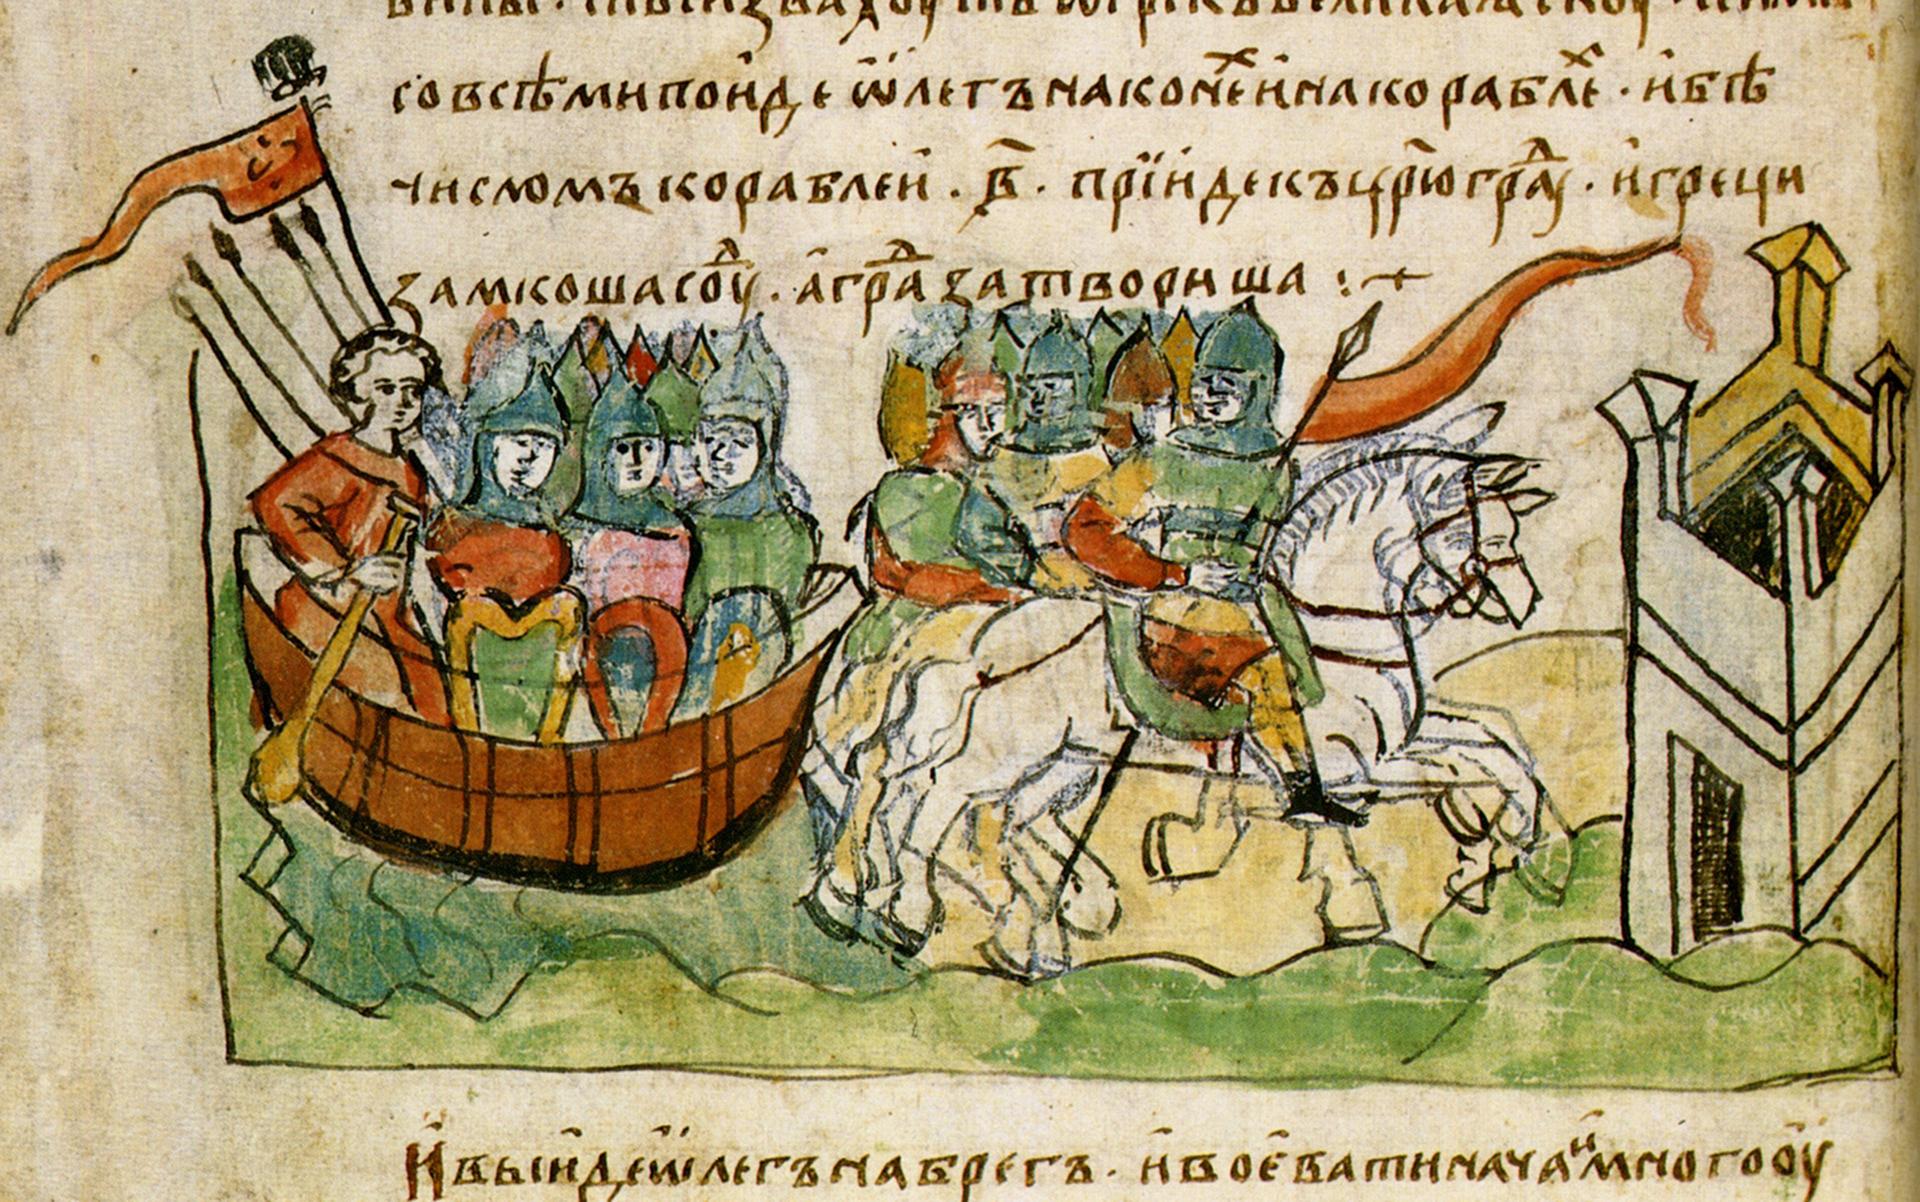 со всѣми пойде ѡ҆легъ на конеⷯ и҆ на кораблеⷯ · и҆ бѣ
числомъ кораблей · в҃ · прїиде къ цр҃ю граⷣу · и҆ греци
замкоша соуⷣ · а҆ граⷣ затвориша :
И҆ выиде ѡ҆легъ на брегъ · и҆ воевати начаⷩ много оу